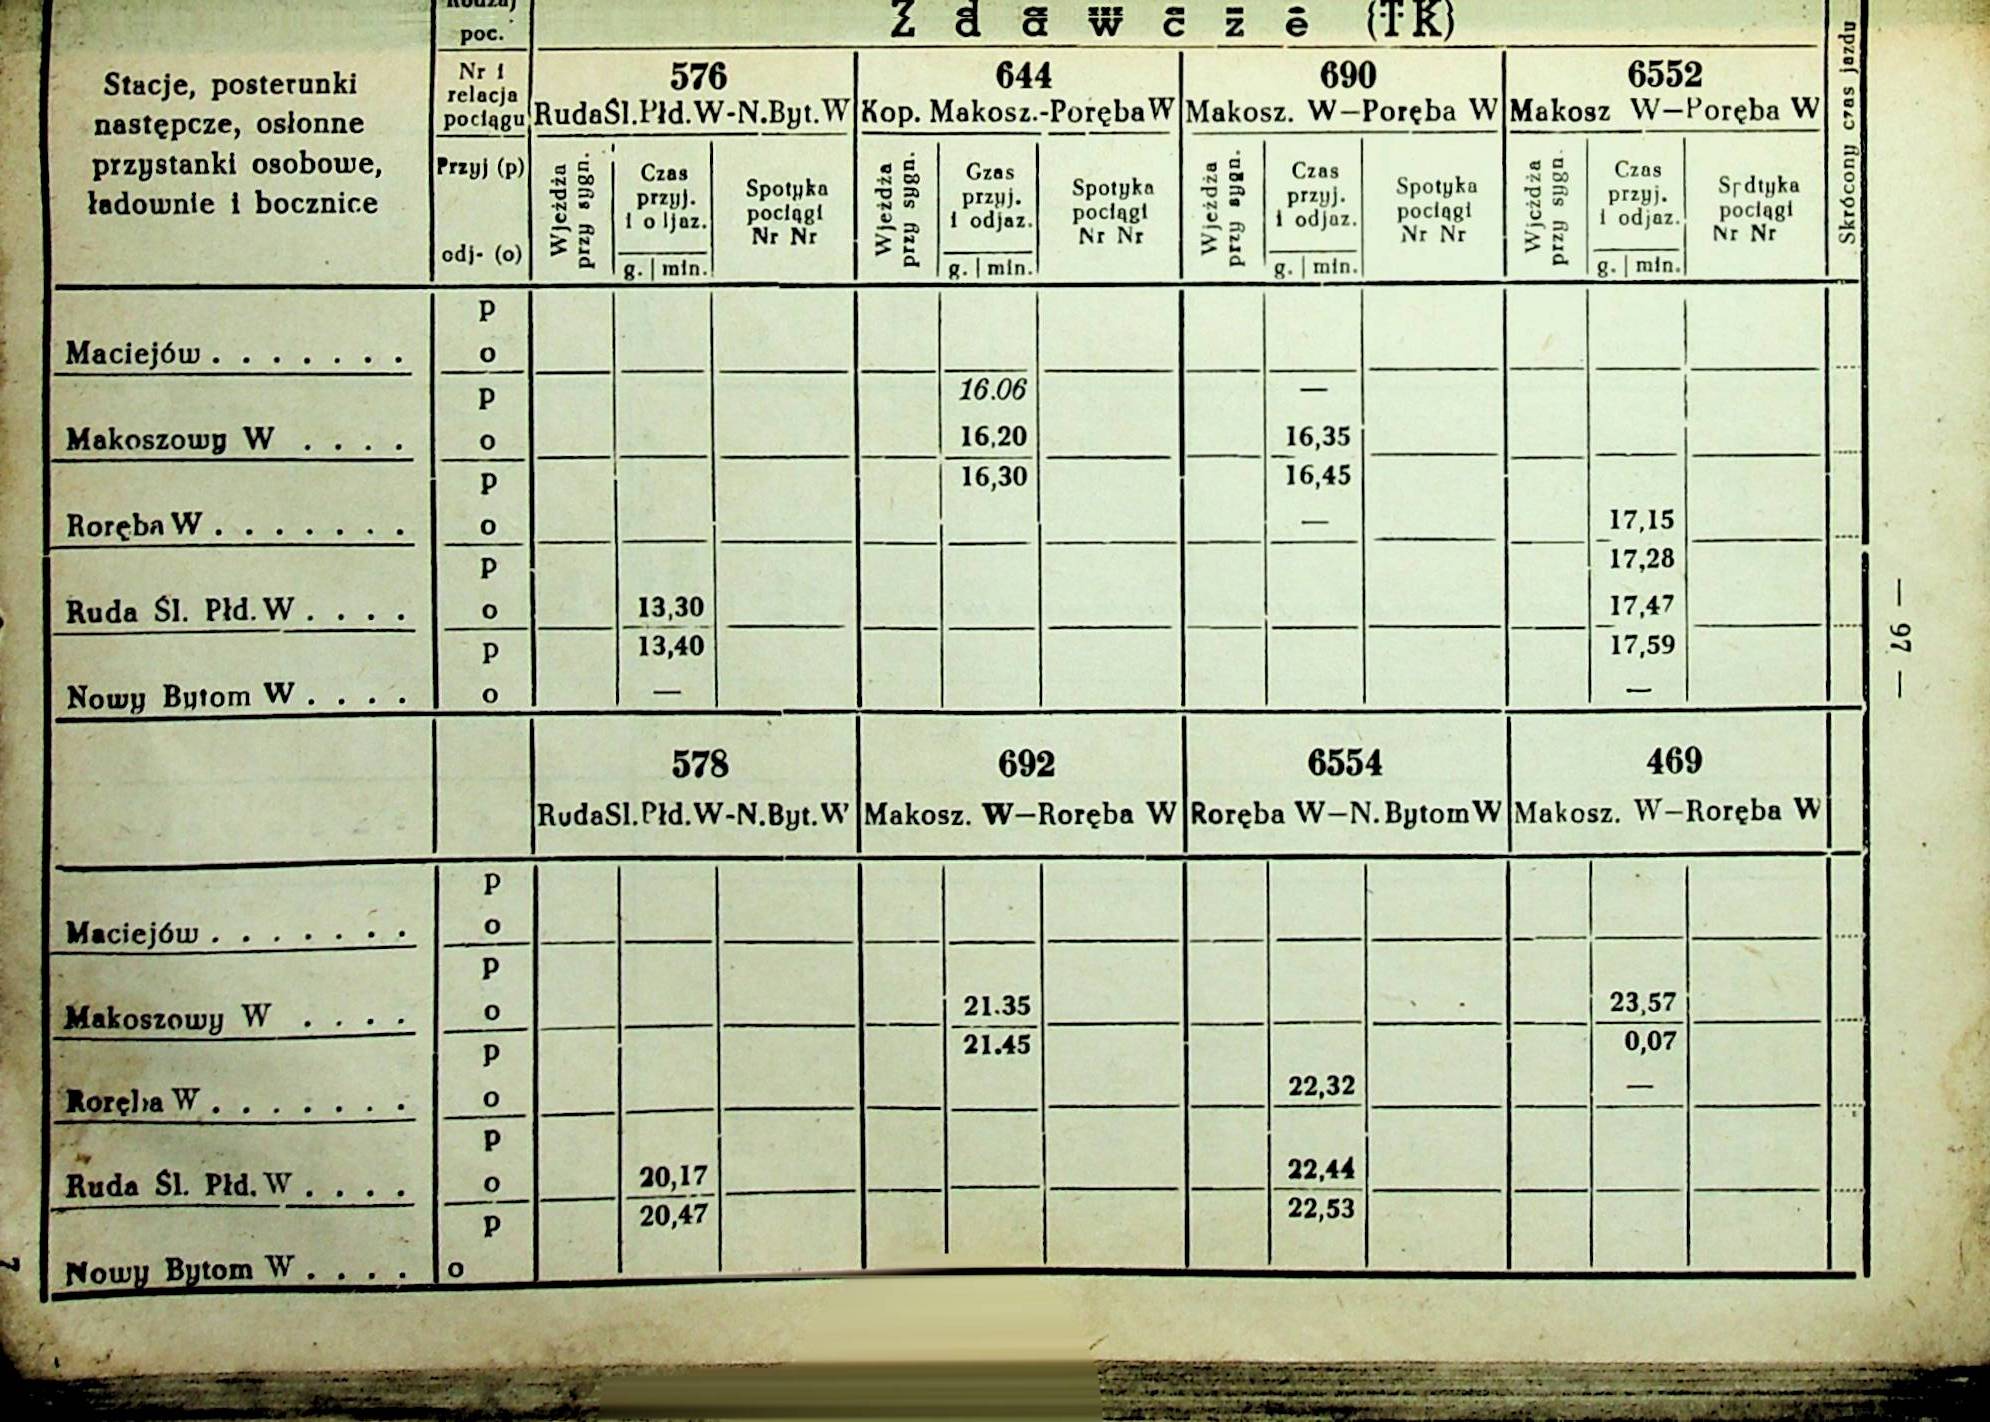 poc.
Zdawcze (TK)
Stacje, posterunki
następcze, osłonne
przystanki osobowe,
ładownie i bocznice
Nr i
relacja
pociągu
Przyj (p)
odj- (o)
576
RudaŚl.Płd.W-N.Byt.W
644
Kop. Makosz.-Poręba W
690
Makosz. W—Poręba W
6552
Makosz W—Poręba W
Skrócony czas jazdu
Wjeżdża
przy sygn.
Czas
przyj.
i odjaz.
g. | min.
Spotyka
pociągi
Nr Nr
Wjeżdża
przy sygn.
Gzas
przyj.
i odjaz.
g. | min.
Spotyka
pociągi
Nr Nr
Wjeżdża
przy sygn.
Czas
przyj.
i odjaz.
g. | min.
Spotyka
pociągi
Nr Nr
Wjeżdża
przy sygn.
Czas
przyj.
i odjaz.
g. | min.
Srdtyka
pociągi
Nr Nr
p
Maciejów . . . . . . . o
p 16.06 —
Makoszowy W . . . . o 16,20 16,35
p 16,30 16,45
Roręba W . . . . . . . o — 17,15
p 17,28
Ruda Śl. Płd. W . . . . o 13,30 17,47
p 13,40 17,59
Nowy Bytom W . . . . o — —
— 97 —
578
RudaSl.Płd.W-N.Byt.W
692
Makosz. W—Roręba W
6554
Roręba W—N. Bytom W
469
Makosz. W—Roręba W
p
Maciejów . . . . . . . o
p
Makoszowy W . . . . o 21.35 23,57
p 21.45 0,07
Roręba W . . . . . . . o 22,32 —
p
Ruda Śl. Płd. W . . . . o 20,17 22,44
p 20,47 22,53
Nowy Bytom W . . . . o
7